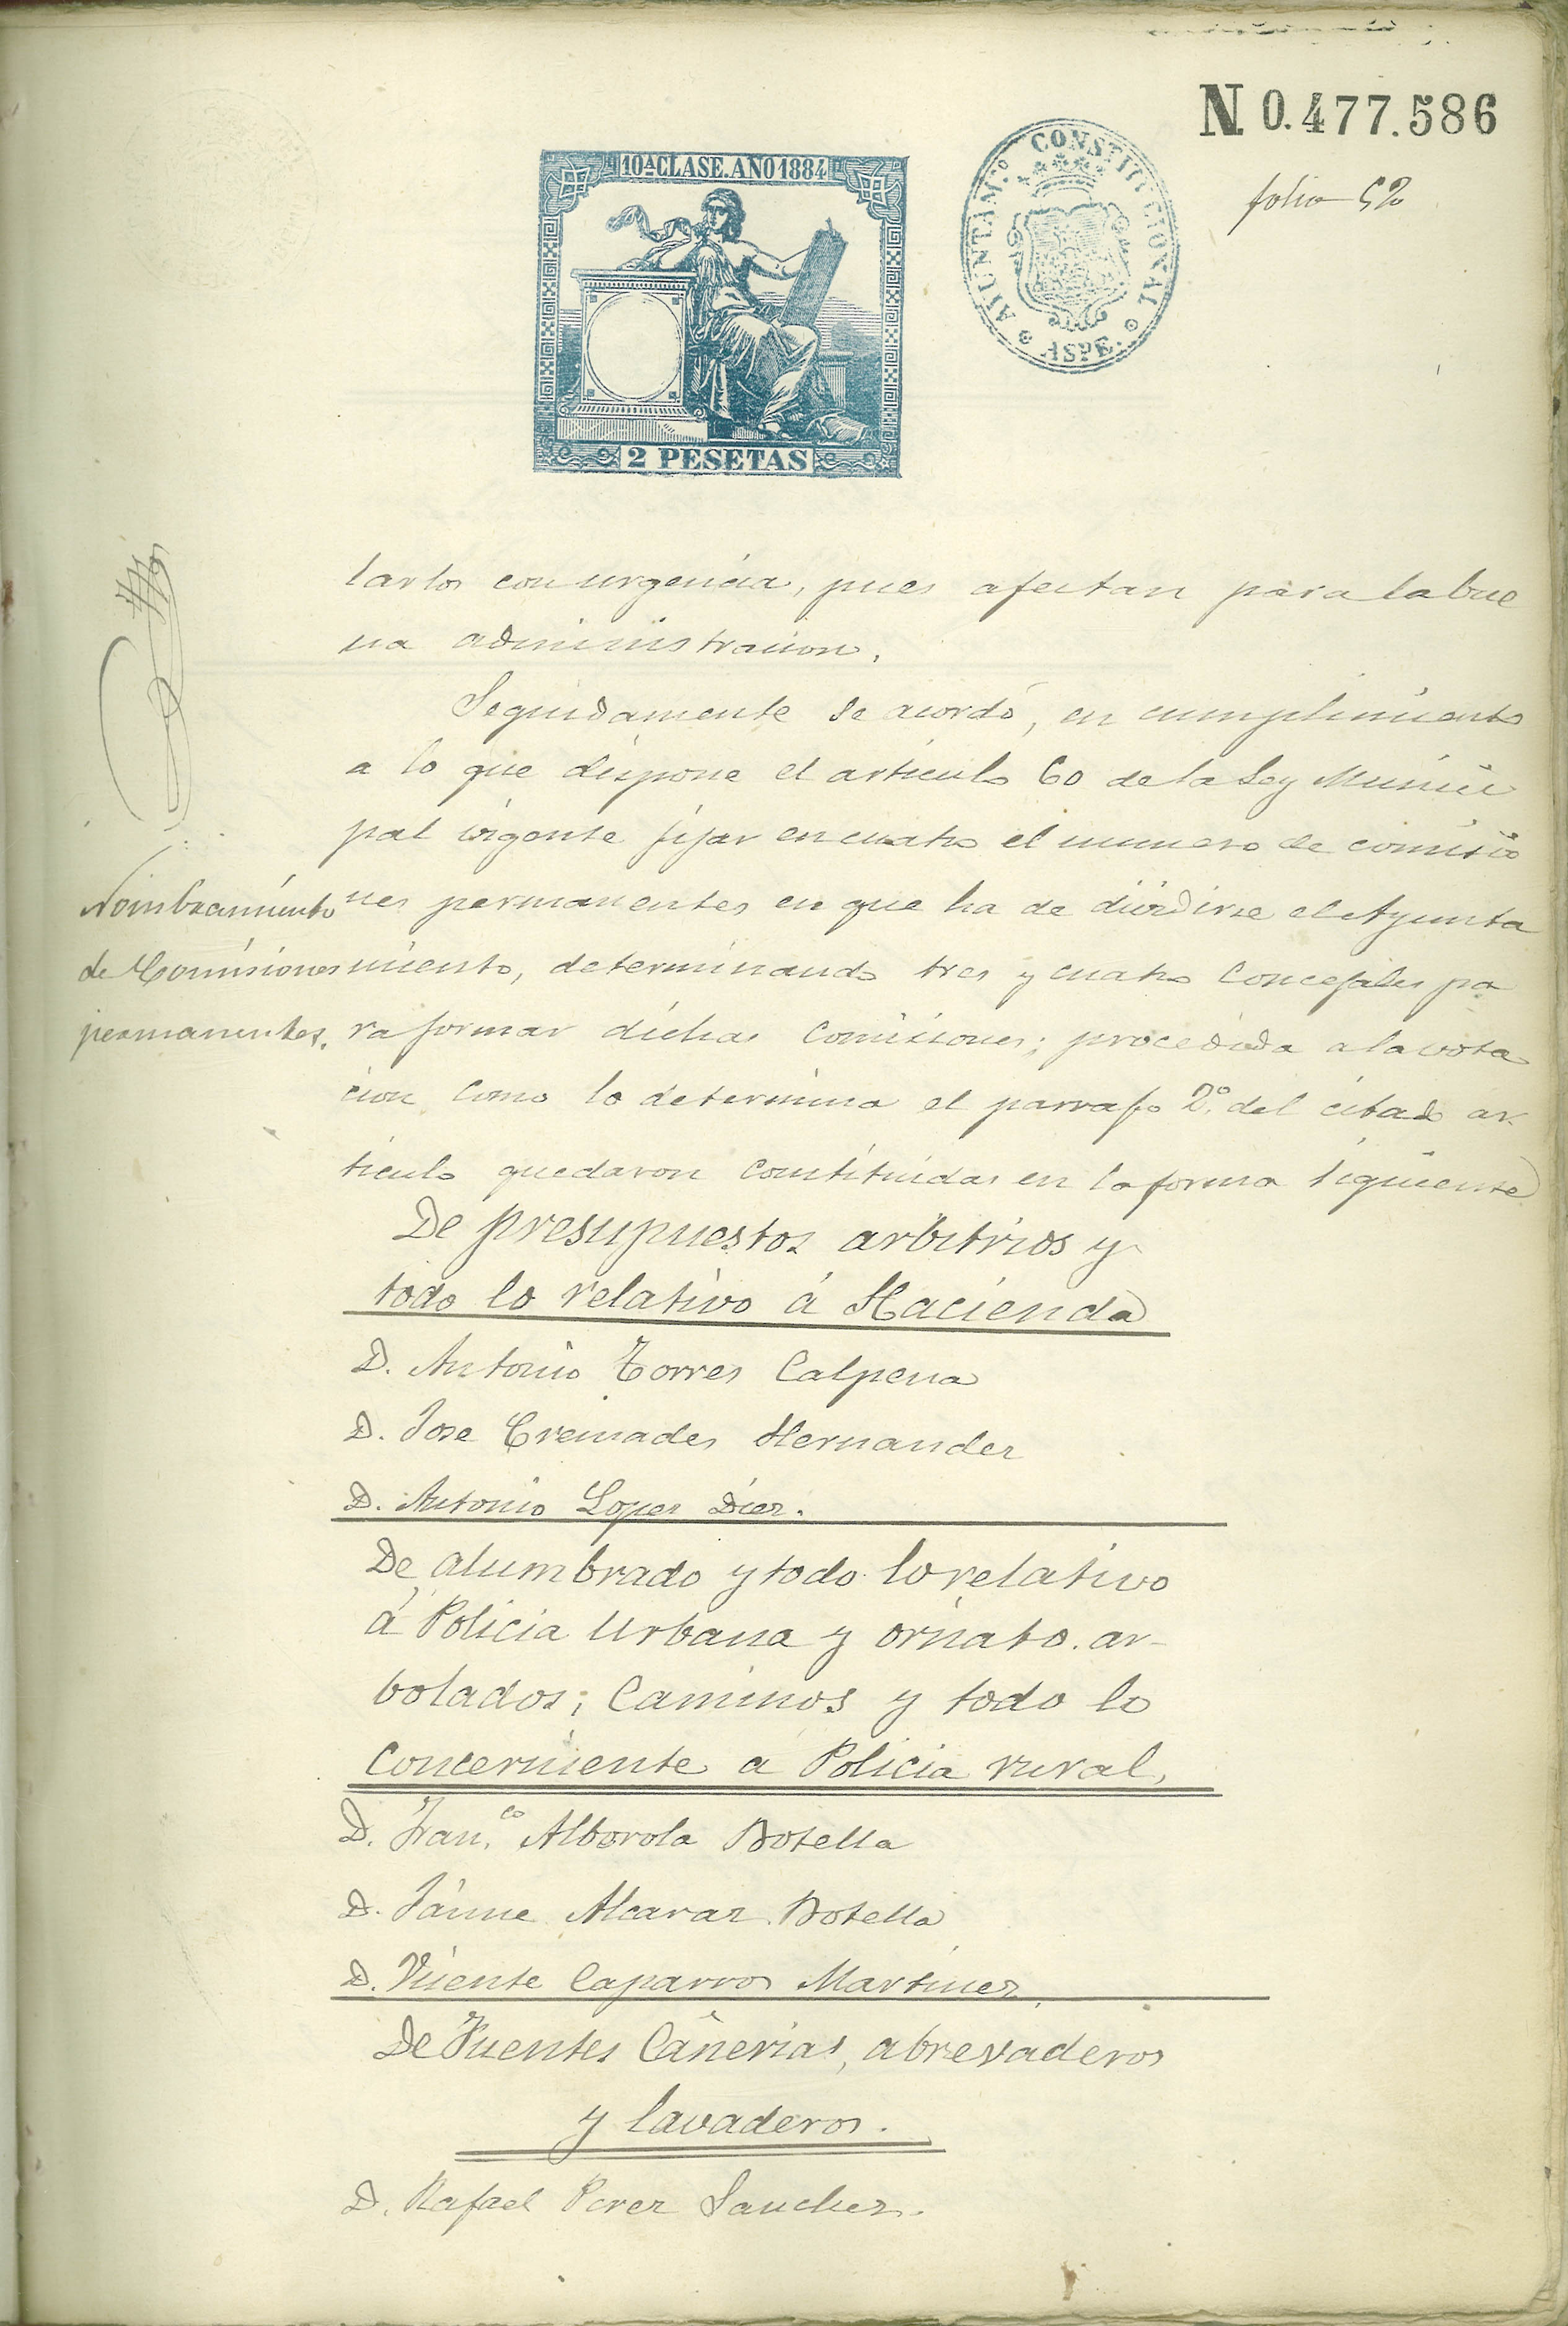 N. 0.477.586
10ª CLASE. AÑO 1884
AYUNTAM.º CONSTITUCIONAL
ASPE.
folio 52
2 PESETAS
tarlos con urgencia, pues afectan para la bue
na administracion.
Seguidamente se acordó, en cumplimiento
a lo que dispone el articulo 60 de la Ley Munici
pal vigente fijar en cuatro el numero de comisio
Nombramiento
de Comisiones
permanentes.
nes permanentes en que ha de dividirse el Ayunta
miento, determinando tres y cuatro Concejales pa
ra formar dichas Comisiones; procedida a la vota
cion como lo determina el parrafo 2º. del citado ar
ticulo quedaron constituidas en la forma siguiente
De presupuestos arbitrios y
todo lo relativo á Hacienda
D. Antonio Torres Calpena
D. Jose Cremades Hernandez
D. Antonio Lopez Diez.
De alumbrado y todo lo relativo
á Policia Urbana y ornato. ar-
bolados; Caminos y todo lo
Concerniente a Policia rural,
D. Fran.co Alborola Botella
D. Jaime Alcaraz Botella
D. Vicente Caparros Martinez.
De Fuentes Cañerias, abrevaderos
y lavaderos.
D. Rafael Perez Sanchez.